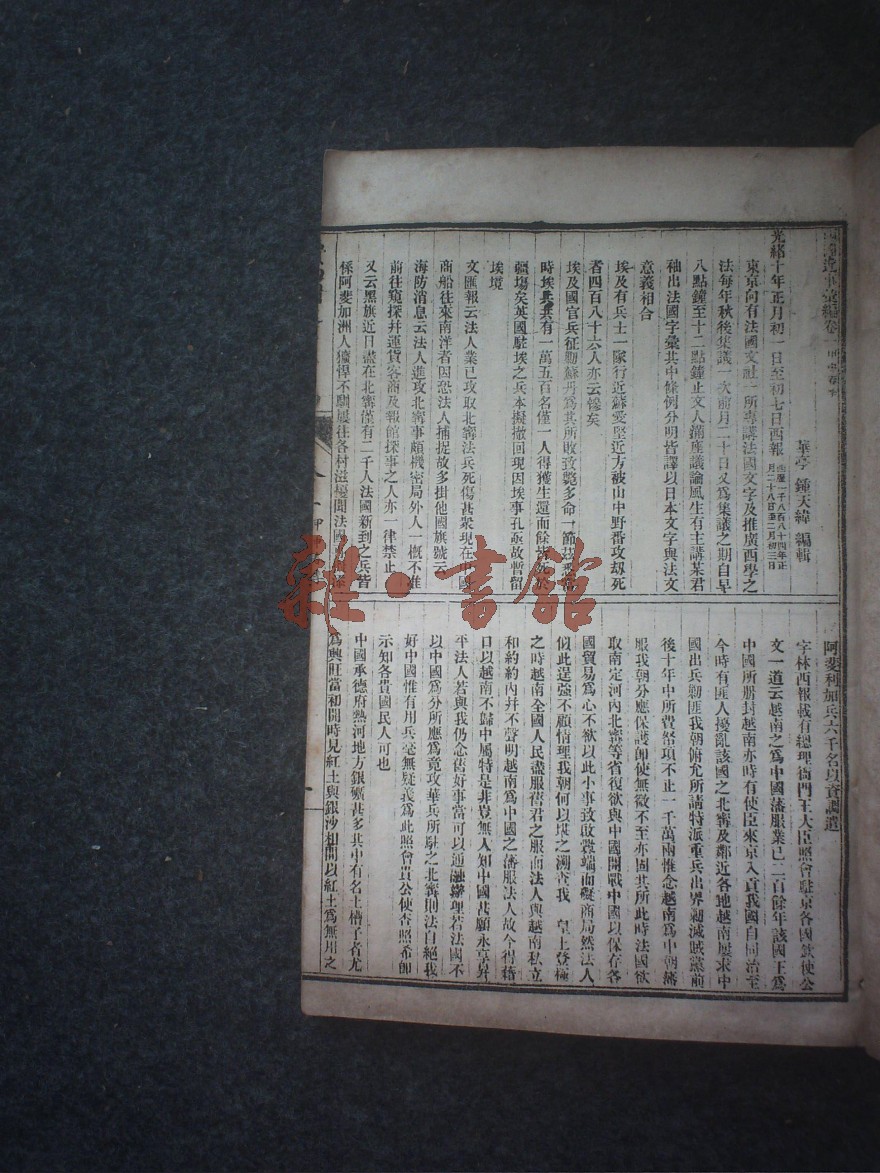 卷一
光緒十年正月初一日至初七日西報
西歷一千八百八十四年正
月二十八日至二月初三日
華亭 鍾天緯 編輯
東京向有法國文社一所專講法國文字及推廣西學之
法每年秋後集議一次前月二十日又為集議之期自早
八點鐘至十二點鐘止文人滿座議論風生有主講某君
袖出法國字彙其中條例分明皆譯以日本文字與法文
意義相合
埃及有兵士一隊行近蘇愛堅近方被山中野番攻刼死
者四百八十六人亦云慘矣
埃及國官兵征勦蘇丹為其所敗致斃多命一節茲悉
時埃兵共有一萬五百名僅一人得獲生還而餘
疆塲矣英國駐埃之兵本擬撤回現因埃事孔亟故暫留
埃境
文匯報云法人業已攻取北甯法兵死傷甚衆現在
商船往來南洋者因恐法人捕捉故多掛他國旗號云
海防消息云法人進攻北甯事頗機密局外人一槪不准
前往窺探并運貨客商及報館探事之人亦一律禁止
又云黑旗近日盡在北甯僅有二千人法國新到之兵皆
係阿斐加洲人獷悍不馴屢往各村滋擾聞法國
阿斐利加兵六千名以資調遣
字林西報載有總理衙門王大臣照會駐京各國欽使公
文一道云越南之為中國藩服業已二百餘年該國王為
中國所册封越南亦時有使臣來京入貢我國自同治至
今時有匪人擾亂該國之北甯及鄰近各地越南屢求中
國出兵勦匪我朝俯允所請特派重兵出界勦滅賊黨前
後十年中所費帑項不止一千萬兩惟念越南為中朝藩
服我朝分應保護卽使無徵不至亦固其所此時法國欲
取南定河內北甯等省復欲與中國開戰中國以保存各
國貿易為心不欲以此小事致啟釁端而礙商局然法人
似此逞強不顧情理我朝何以堪之溯查我 皇上登極
之時越南全國人民盡服舊君之服而法人與越南私立
和約約內并不聲明越南為中國之藩服法人故今得藉
口以越南不歸中屬特是非豈無人知中國甚願永享昇
平法人若與我仍念舊好事當可以通融辦理若法國不
以中國為分所應為竟攻華兵所駐之北甯則法自絕我
好中國惟有用兵毫無疑義為此照會貴公使查照希卽
示知各貴國民人可也
中國承德府熱河地方銀礦甚多其中有名土槽子者尤
為興旺當初開時見紅土與銀沙相間以紅土為無用之
雜·書館